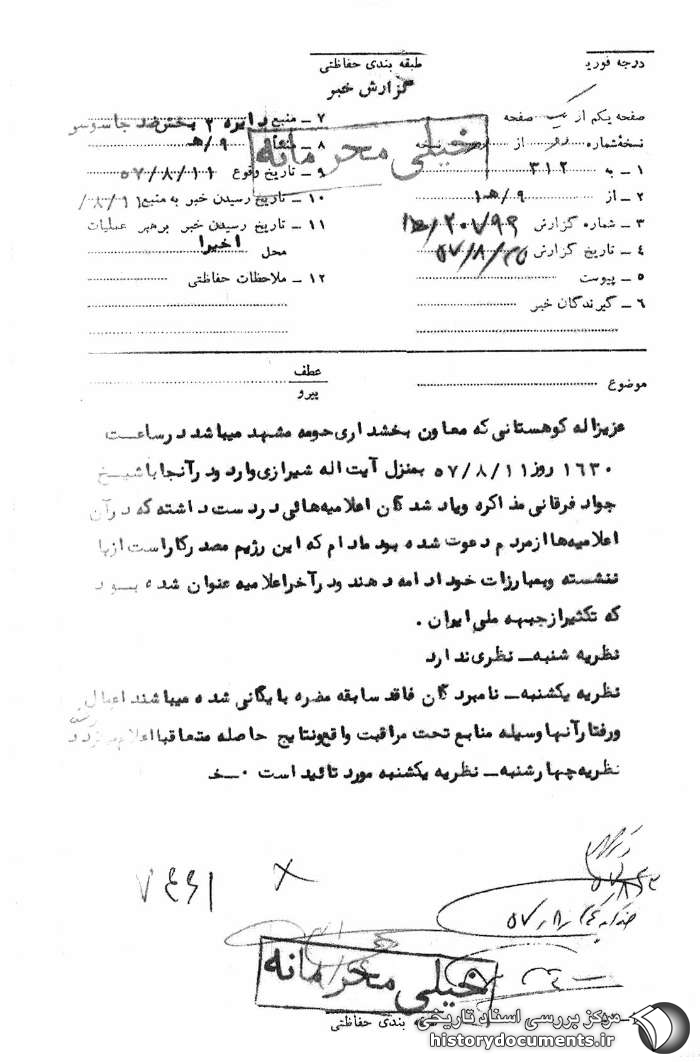 درجه فوریت
طبقه بندی حفاظتی
گزارش خبر
صفحه یکم از یک صفحه
نسخه شماره از نسخه
۱ ـ به ۳۱۲
۲ ـ از ۹/هـ۱
۳ ـ شماره گزارش
۴ ـ تاریخ گزارش
۵ ـ پیوست
۶ ـ گیرندگان خبر
۷ ـ منبع دایره ۲ بخش ضد جاسوسی
۸ ـ منشأ ۹/هـ
خیلی محرمانه
۹ ـ تاریخ وقوع ۵۷/۸/۱۱
۱۰ ـ تاریخ رسیدن خبر به منبع
۱۱ ـ تاریخ رسیدن خبر برهبر عملیات
اخیرا
محل
۱۲ ـ ملاحظات حفاظتی
موضوع
عطف
پیرو
عزیزاله کوهستانی که معاون بخشداری حومه مشهد میباشد در ساعت
۱۶۳۰ روز ۵۷/۸/۱۱ بمنزل آیت اله شیرازی وارد و در آنجا با شیخ
جواد فرقانی مذاکره و یاد شدگان اعلامیه هائی در دست داشته که در آن
اعلامیه ها از مردم دعوت شده بود مادام که این رژیم مصدر کار است از پا
ننشسته و بمبارزات خود ادامه دهند و در آخر اعلامیه عنوان شده بود
که تکثیر از جبهه ملی ایران .
نظریه شنبه ـ نظری ندارد
نظریه یکشنبه ـ نامبردگان فاقد سابقه مضره بایگانی شده میباشند اعمال
و رفتار آنها وسیله منابع تحت مراقبت واقع و نتایج حاصله متعاقبا
نظریه چهارشنبه ـ نظریه یکشنبه مورد تائید است ۰ـخـ
۷۴۶۱
۵۷٫۸٫۲۴
خیلی محرمانه
بندی حفاظتی
مرکز بررسی اسناد تاریخی
historydocuments.ir